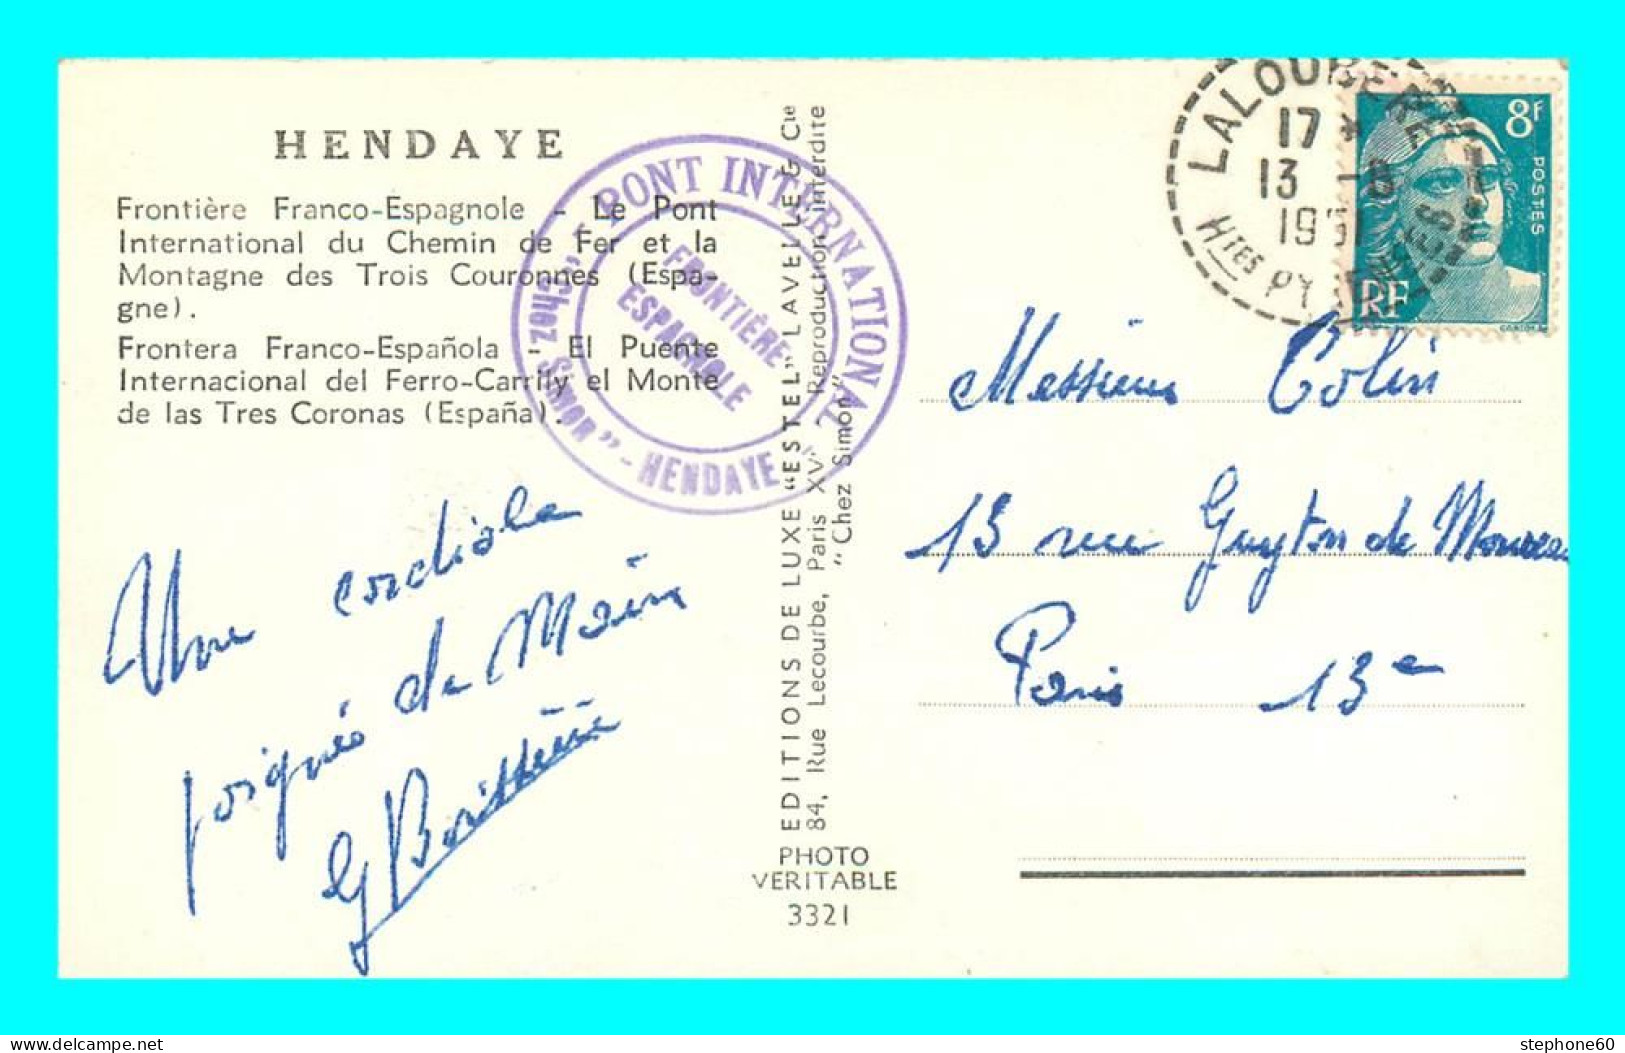 HENDAYE
Frontière Franco-Espagnole - Le Pont
International du Chemin de Fer et la
Montagne des Trois Couronnes (Espa-
gne).
Frontera Franco-Española - El Puente
Internacional del Ferro-Carrily el Monte
de las Tres Coronas (España).
PONT INTERNATIONAL
"Chez SIMON" - HENDAYE
FRONTIÈRE
ESPAGNOLE
Une cordiale
poignée de Main
EDITIONS DE LUXE "ESTEL" LAVELLE & Cie
84, Rue Lecourbe, Paris XV - Reproduction interdite
"Chez Simon"
PHOTO
VERITABLE
3321
LALOUBERE
17 *
13
1951
Htes PYRENEES
8F
POSTES
RF
Messieurs Colin
13 rue Guyton de
Paris 13e
delcampe.net
stephone60